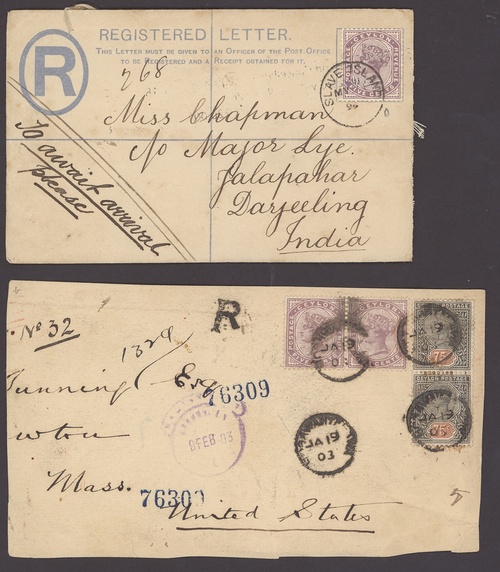 REGISTERED LETTER.
THIS LETTER MUST BE GIVEN TO AN OFFICER OF THE POST OFFICE
TO BE REGISTERED AND A RECEIPT OBTAINED FOR IT.
R
768
POSTAGE CEYLON REVENUE
SLAVE ISLAND
Miss Chapman
c/o Major Lye.
Jalapahar
Darjeeling
India
To await arrival
please
No 32
R
POSTAGE CEYLON
CEYLON
JA 19
JA 19
03
POSTAGE
75
CEYLON POSTAGE
75
JA 19
03
Tunning Esq
76309
8 FEB 03
JA 19
03
wton
Mass.
76309
United States
5